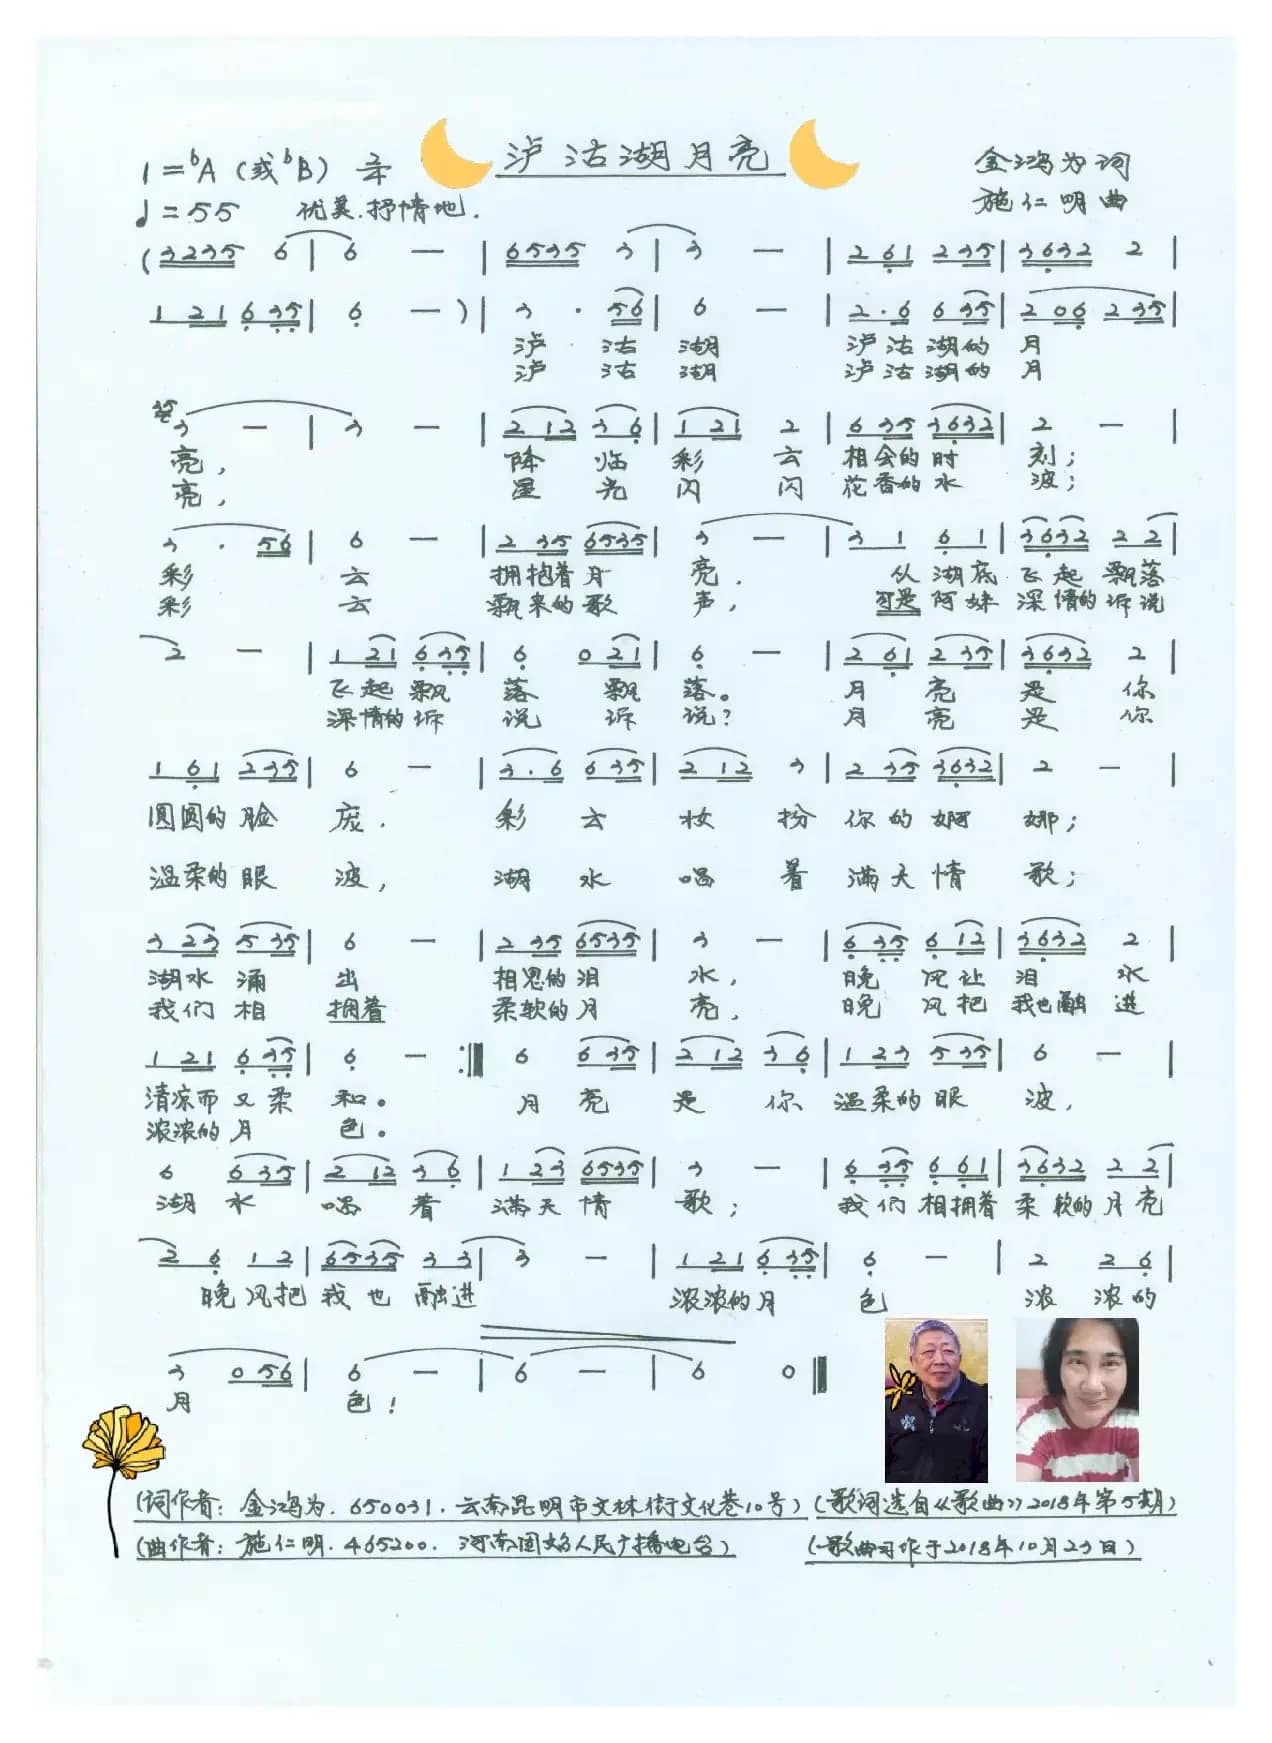 泸沽湖月亮
1=ᵇA（或ᵇB） 2/4
金鸿为词
♩=55 优美.抒情地.
施仁明曲
(3235 6 | 6 — | 6535 3 | 3 — | 2 61 235 | 3632 2 |
1 21 635 | 6 — ) | 3 · 56 | 6 — | 2·6 635 | 206 235 |
泸 沽 湖 泸沽湖的月
泸 沽 湖 泸沽湖的月
3 — | 3 — | 2 12 36 | 1 21 2 | 6 35 3632 | 2 — |
亮， 降临彩云相会的时刻；
亮， 星光闪闪花香的水波；
3 · 56 | 6 — | 2 35 6535 | 3 — | 31 61 | 3632 22 |
彩云 拥抱着月亮. 从湖底飞起飘落
彩云 飘来的歌声， 可是阿妹深情的诉说
2 — | 1 21 635 | 6 0 21 | 6 — | 2 61 235 | 3632 2 |
飞起飘落 飘落。 月亮是你
深情的诉说 诉说？ 月亮是你
1 61 235 | 6 — | 3·6 635 | 2 12 3 | 2 35 3632 | 2 — |
圆圆的脸庞. 彩云妆扮你的婀娜；
温柔的眼波， 湖水唱着满天情歌；
3 23 535 | 6 — | 2 35 6535 | 3 — | 635 612 | 3632 2 |
湖水涌出 相思的泪水， 晚风让泪水
我们相拥着 柔软的月亮， 晚风把我也融进
1 21 635 | 6 — :‖ 6 635 | 2 12 36 | 1 23 535 | 6 — |
清凉而又柔和。 月亮是你温柔的眼波，
浓浓的月色。
6 635 | 2 12 36 | 1 23 6535 | 3 — | 635 661 | 3632 22 |
湖水唱着满天情歌； 我们相拥着柔软的月亮
26 12 | 6535 33 | 3 — | 1 21 635 | 6 — | 2 26 |
晚风把我也融进 浓浓的月色 浓浓的
3 056 | 6 — | 6 — | 6 0 ‖
月 色！
(词作者：金鸿为. 650031. 云南昆明市文林街文化巷10号) (歌词选自《歌曲》2018年第5期)
(曲作者：施仁明. 465200. 河南固始人民广播电台) (歌曲习作于2018年10月23日)